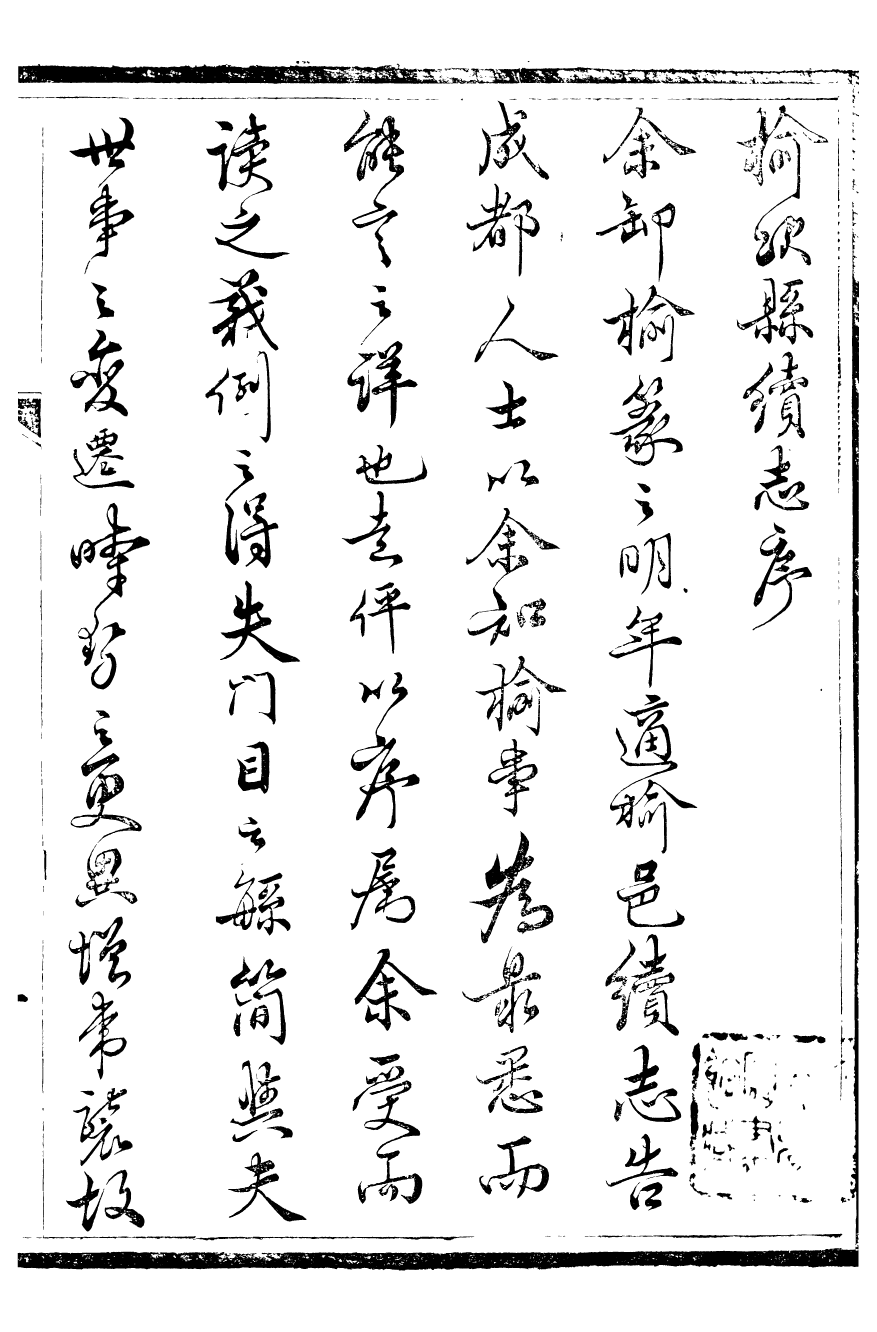 榆次縣續志序
余卸榆篆之明年適榆邑續志告
成都人士以余知榆事為最悉而
能言之詳也走伻以序屬余受而
讀之義例之得失門目之繁簡與夫
世事之變遷時勢之更異增常襲故